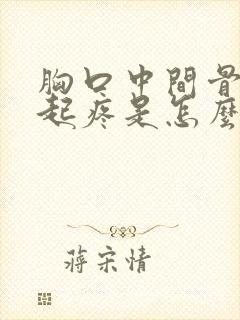 胸口中間骨
起疼是怎麼
蔣宋情